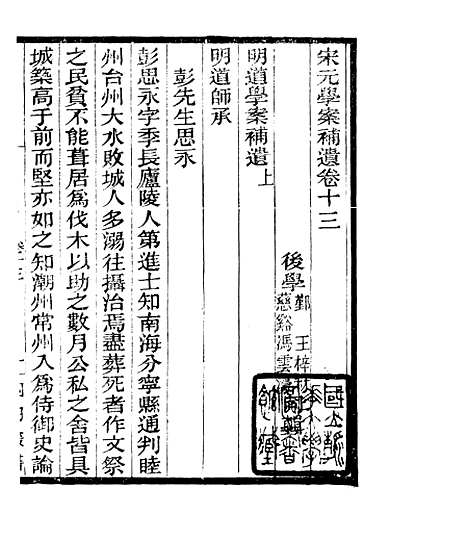 宋元學案補遺卷十三
後學
鄞 王梓材
慈谿馮雲濠
明道學案補遺上
明道師承
彭先生思永
彭思永字季長廬陵人第進士知南海分寧縣通判睦
州台州大水敗城人多溺往攝治焉盡葬死者作文祭
之民貧不能葺居爲伐木以助之數月公私之舍皆具
城築高于前而堅亦如之知潮州常州入爲侍御史論